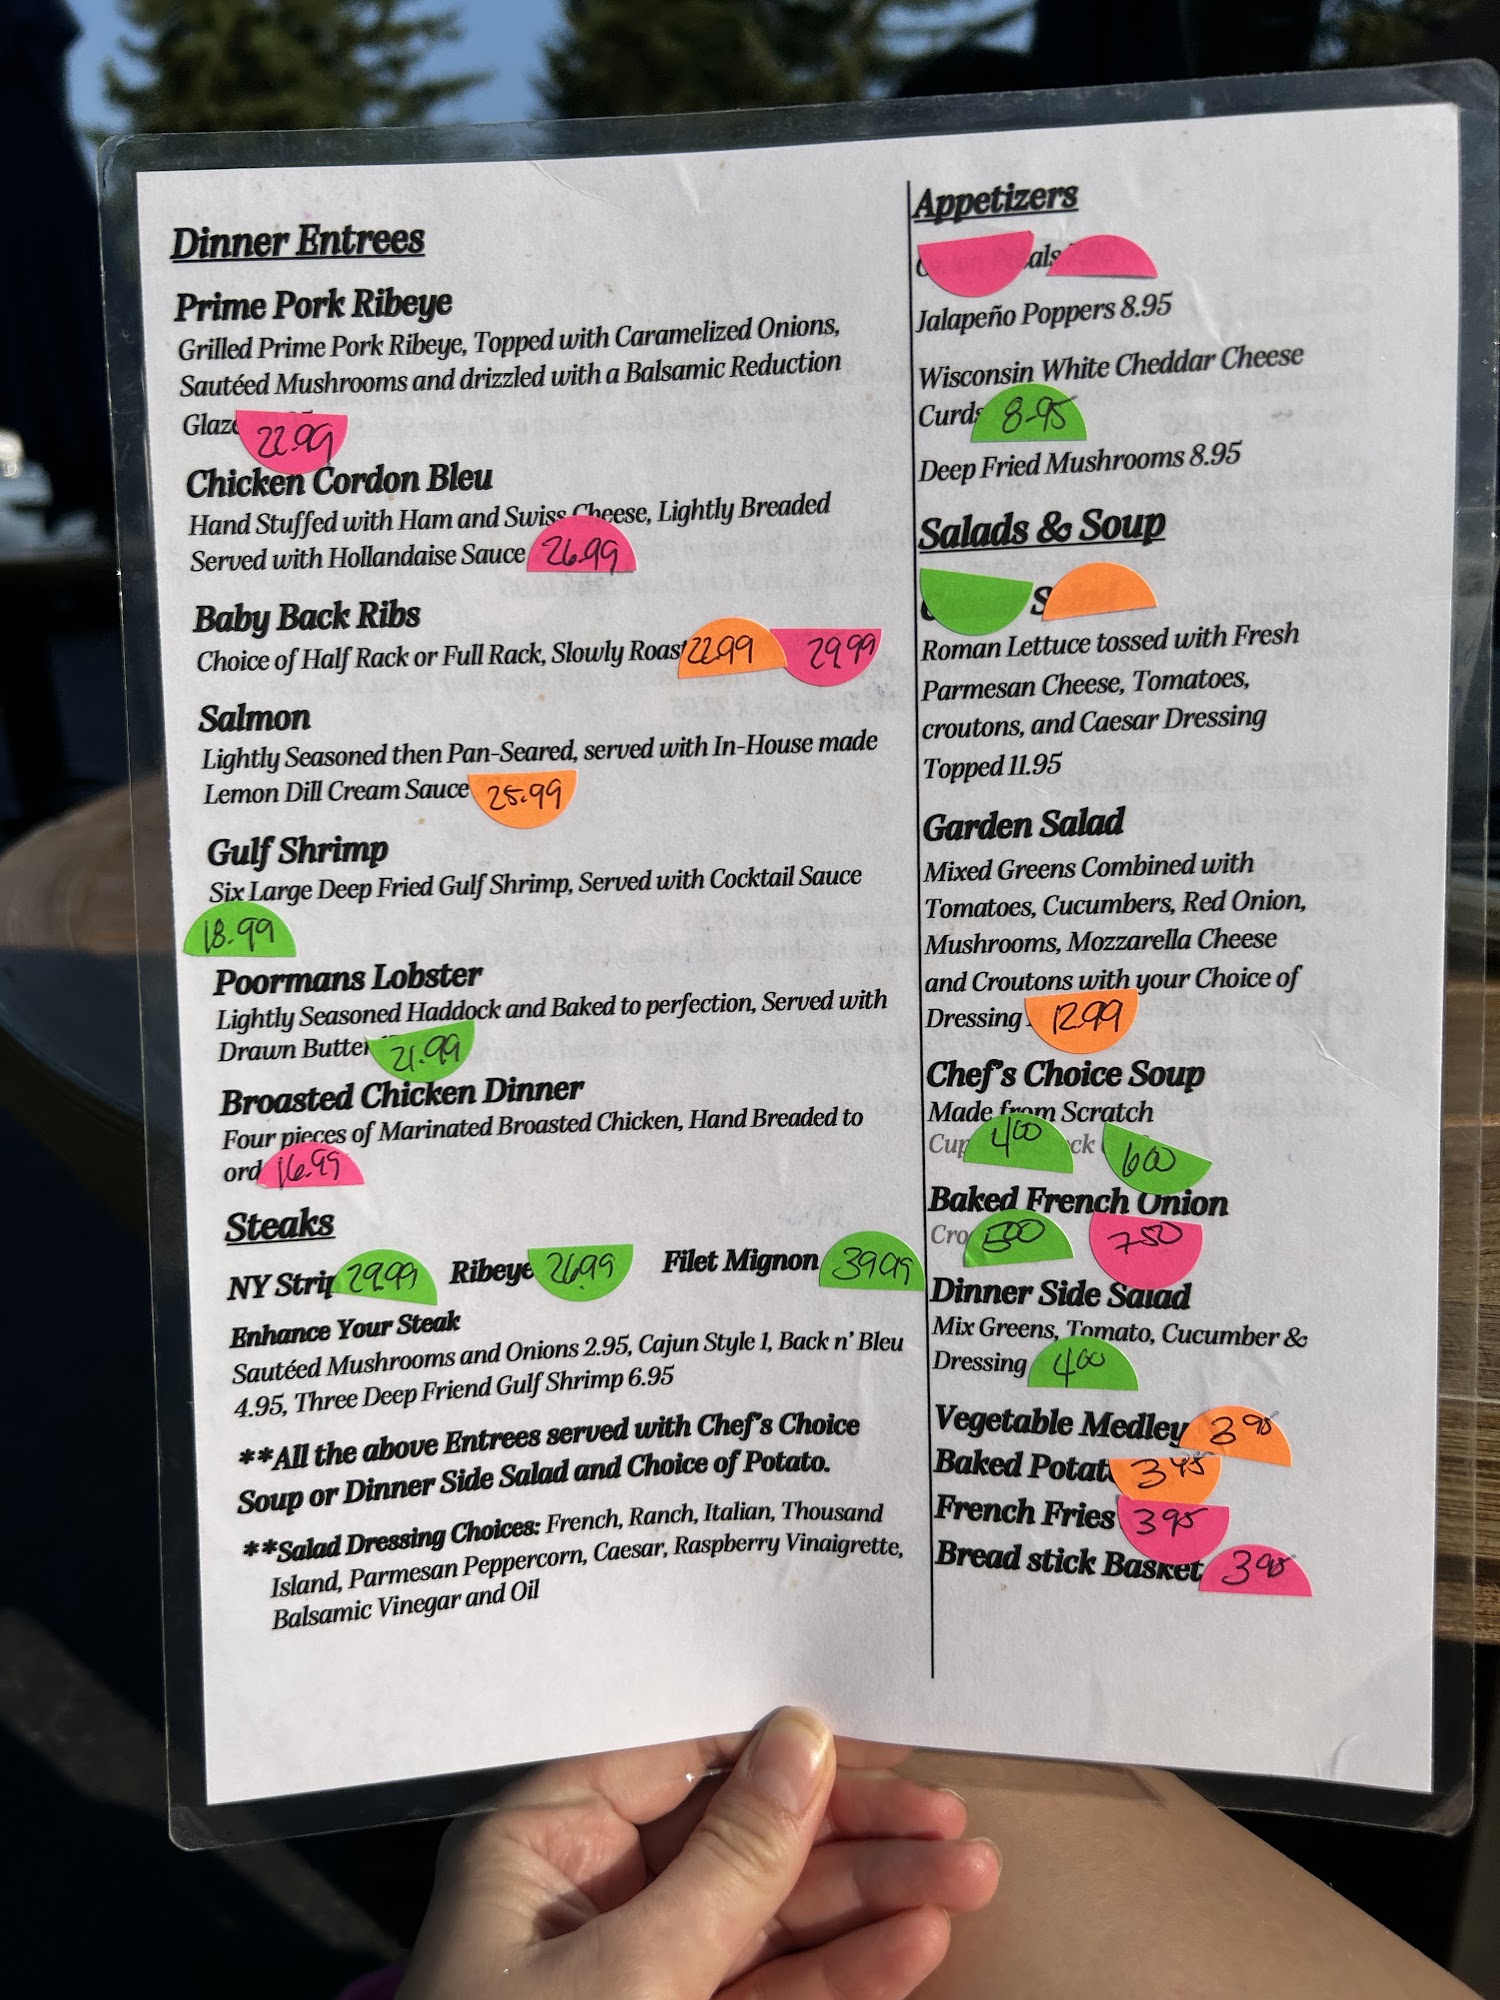 Dinner Entrees
Prime Pork Ribeye
Grilled Prime Pork Ribeye, Topped with Caramelized Onions,
Sautéed Mushrooms and drizzled with a Balsamic Reduction
Glaze 22.99
Chicken Cordon Bleu
Hand Stuffed with Ham and Swiss Cheese, Lightly Breaded
Served with Hollandaise Sauce 26.99
Baby Back Ribs
Choice of Half Rack or Full Rack, Slowly Roast 22.99 29.99
Salmon
Lightly Seasoned then Pan-Seared, served with In-House made
Lemon Dill Cream Sauce 25.99
Gulf Shrimp
Six Large Deep Fried Gulf Shrimp, Served with Cocktail Sauce
18.99
Poormans Lobster
Lightly Seasoned Haddock and Baked to perfection, Served with
Drawn Butter 21.99
Broasted Chicken Dinner
Four pieces of Marinated Broasted Chicken, Hand Breaded to
ord 16.99
Steaks
NY Strip 29.99 Ribeye 26.99 Filet Mignon 39.99
Enhance Your Steak
Sautéed Mushrooms and Onions 2.95, Cajun Style 1, Back n' Bleu
4.95, Three Deep Friend Gulf Shrimp 6.95
**All the above Entrees served with Chef's Choice
Soup or Dinner Side Salad and Choice of Potato.
**Salad Dressing Choices: French, Ranch, Italian, Thousand
Island, Parmesan Peppercorn, Caesar, Raspberry Vinaigrette,
Balsamic Vinegar and Oil
Appetizers
Jalapeño Poppers 8.95
Wisconsin White Cheddar Cheese
Curds 8.95
Deep Fried Mushrooms 8.95
Salads & Soup
Roman Lettuce tossed with Fresh
Parmesan Cheese, Tomatoes,
croutons, and Caesar Dressing
Topped 11.95
Garden Salad
Mixed Greens Combined with
Tomatoes, Cucumbers, Red Onion,
Mushrooms, Mozzarella Cheese
and Croutons with your Choice of
Dressing 12.99
Chef's Choice Soup
Made from Scratch
Cup 4.00 ck 6.00
Baked French Onion
Cro 5.00 7.50
Dinner Side Salad
Mix Greens, Tomato, Cucumber &
Dressing 4.00
Vegetable Medley 3.95
Baked Potat 3.95
French Fries 3.95
Bread stick Basket 3.95